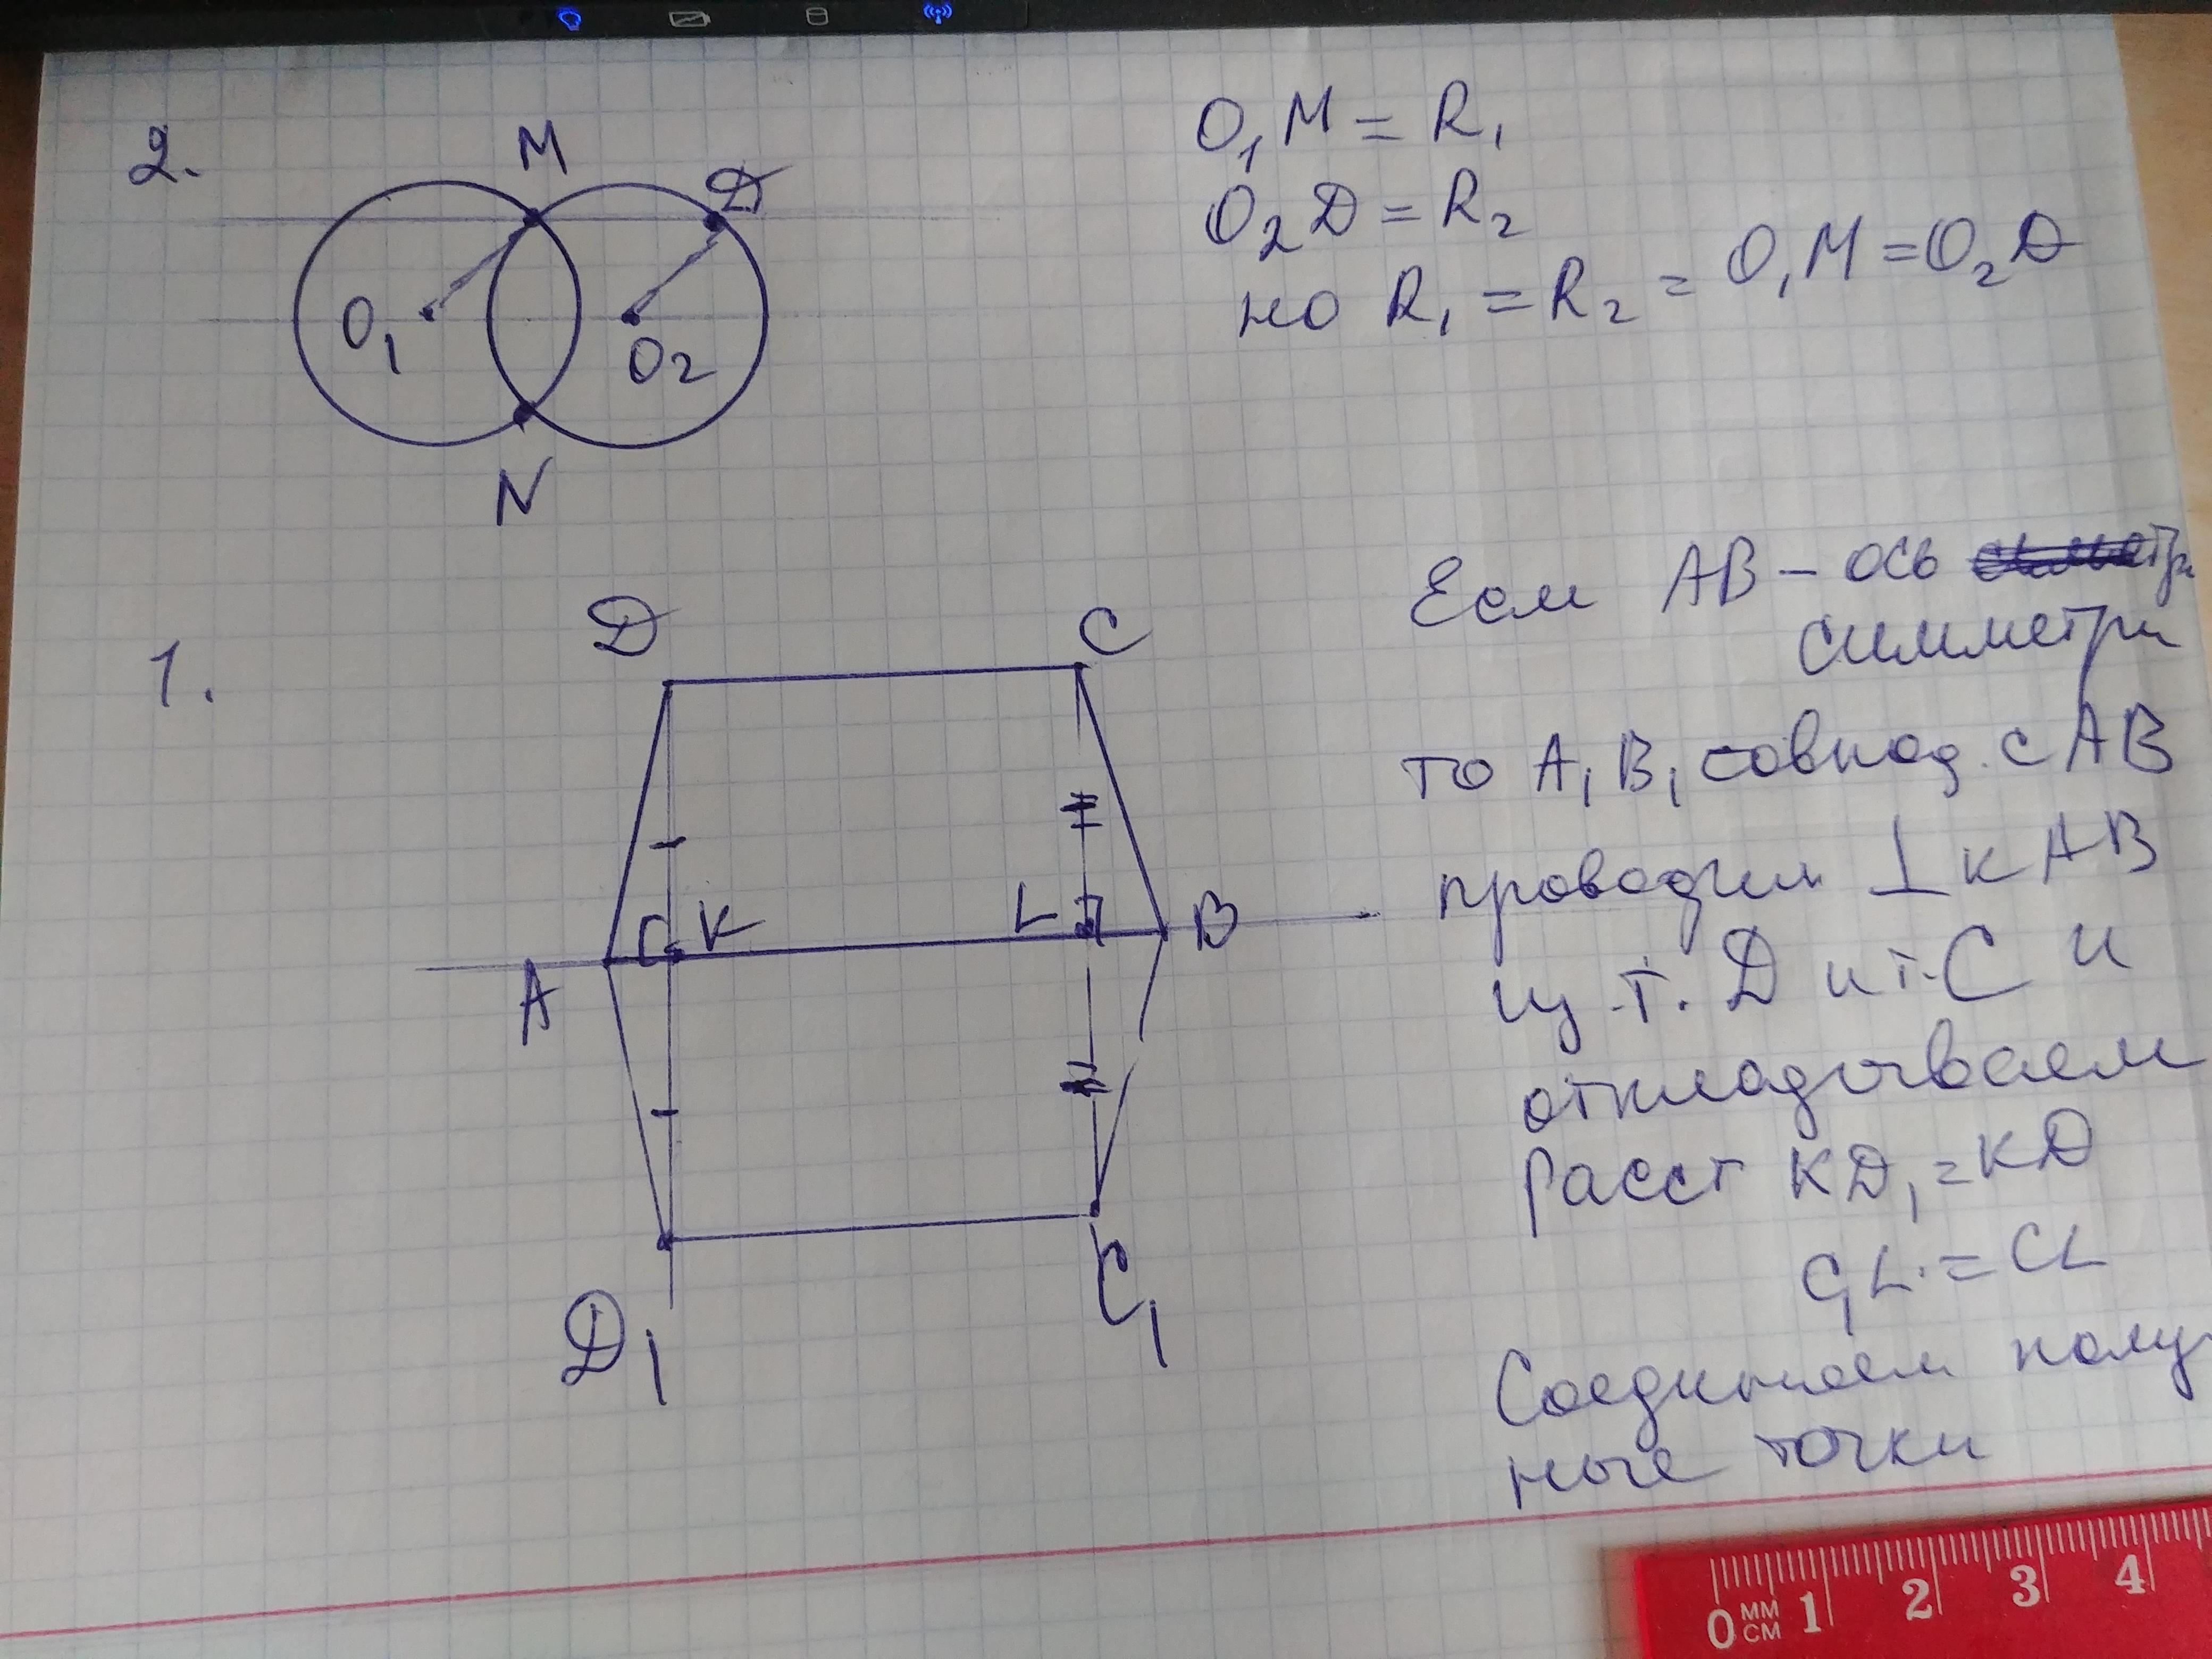 2.
M
D
O₁
O₂
N
O₁M = R₁
O₂D = R₂
но R₁ = R₂ = O₁M = O₂D
1.
D
C
K
L
A
B
D₁
C₁
Если AB – ось
симметри
то A₁B₁ совпад. с AB
проводим ⊥ к AB
из т. D и т. C и
откладываем
расст KD₁ = KD
C₁L = CL
Соединяем полу
ные точки
0 1 2 3 4
MM
CM